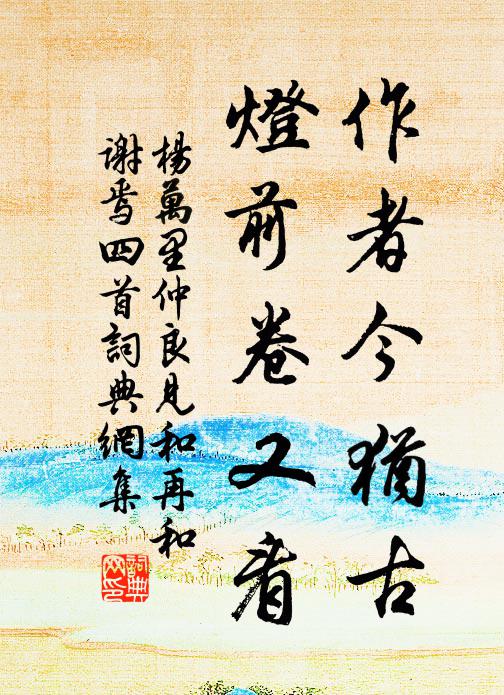 作者今猶古
燈前卷又看
楊萬里仲良見和再和
謝焉四首詞典網集
詞典
网印